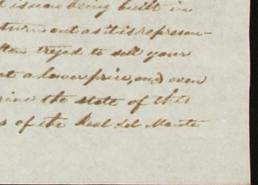 is now being built in
turn out as it is represen-
to sell your
at a lower price, and even
the state of this
of the Real del Monte